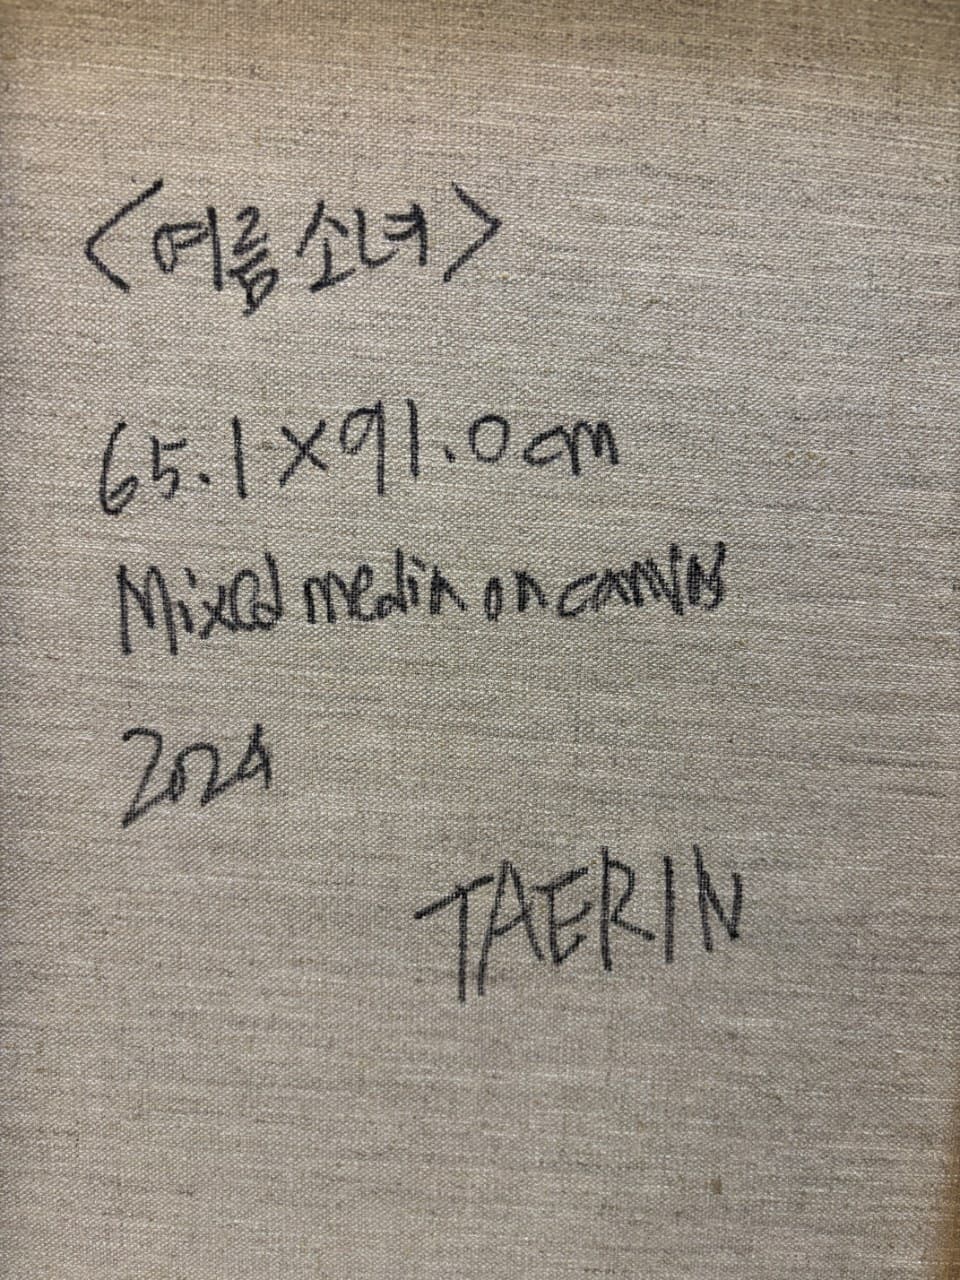 <여름 소녀>
65.1×91.0cm
Mixed media on canvas
2024
TAERIN